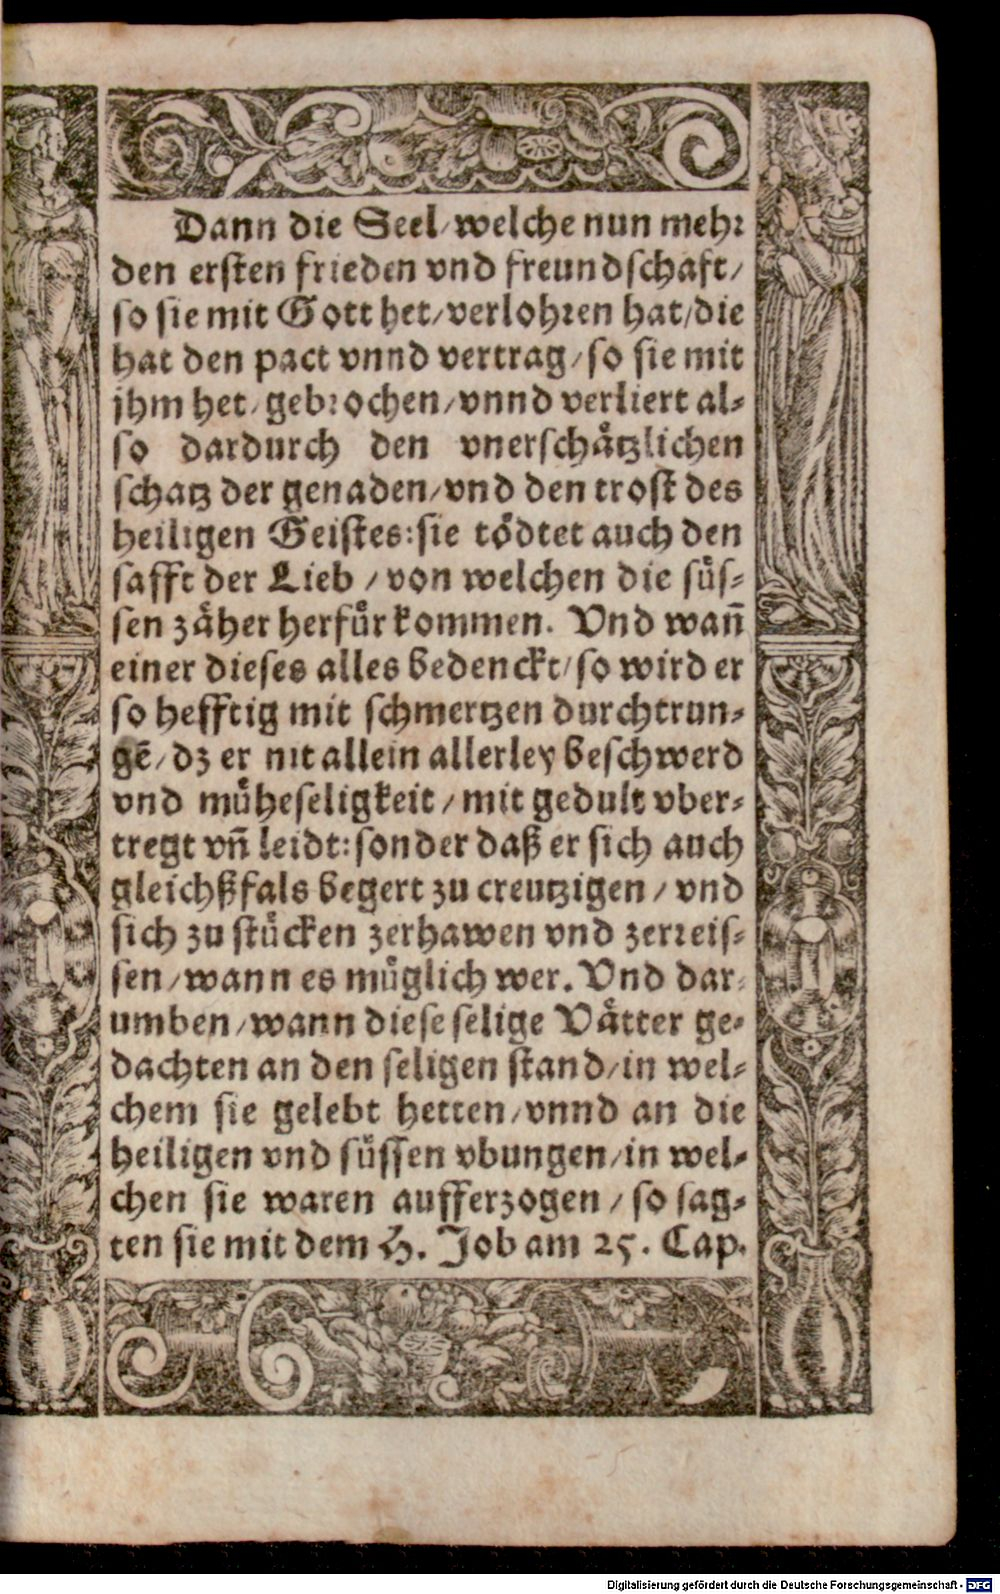 Dann die Seel/welche nun mehr
den ersten frieden vnd freundschaft/
so sie mit Gott het/verlohren hat/die
hat den pact vnnd vertrag/so sie mit
jhm het/gebrochen/vnnd verliert al-
so dardurch den vnerschätzlichen
schatz der genaden/vnd den trost des
heiligen Geistes:sie tödtet auch den
safft der Lieb/von welchen die süs-
sen zäher herfür kommen. Vnd wañ
einer dieses alles bedenckt/so wird er
so hefftig mit schmertzen durchtrun-
gẽ/dz er nit allein allerley beschwerd
vnd müheseligkeit/mit gedult vber-
tregt vñ leidt:sonder daß er sich auch
gleichßfals begert zu creutzigen/vnd
sich zu stücken zerhawen vnd zerreis-
sen/wann es müglich wer. Vnd dar-
umben/wann diese selige Vätter ge-
dachten an den seligen stand/in wel-
chem sie gelebt hetten/vnnd an die
heiligen vnd süssen vbungen/in wel-
chen sie waren aufferzogen/so sag-
ten sie mit dem H. Job am 25. Cap.
Digitalisierung gefördert durch die Deutsche Forschungsgemeinschaft - DFG